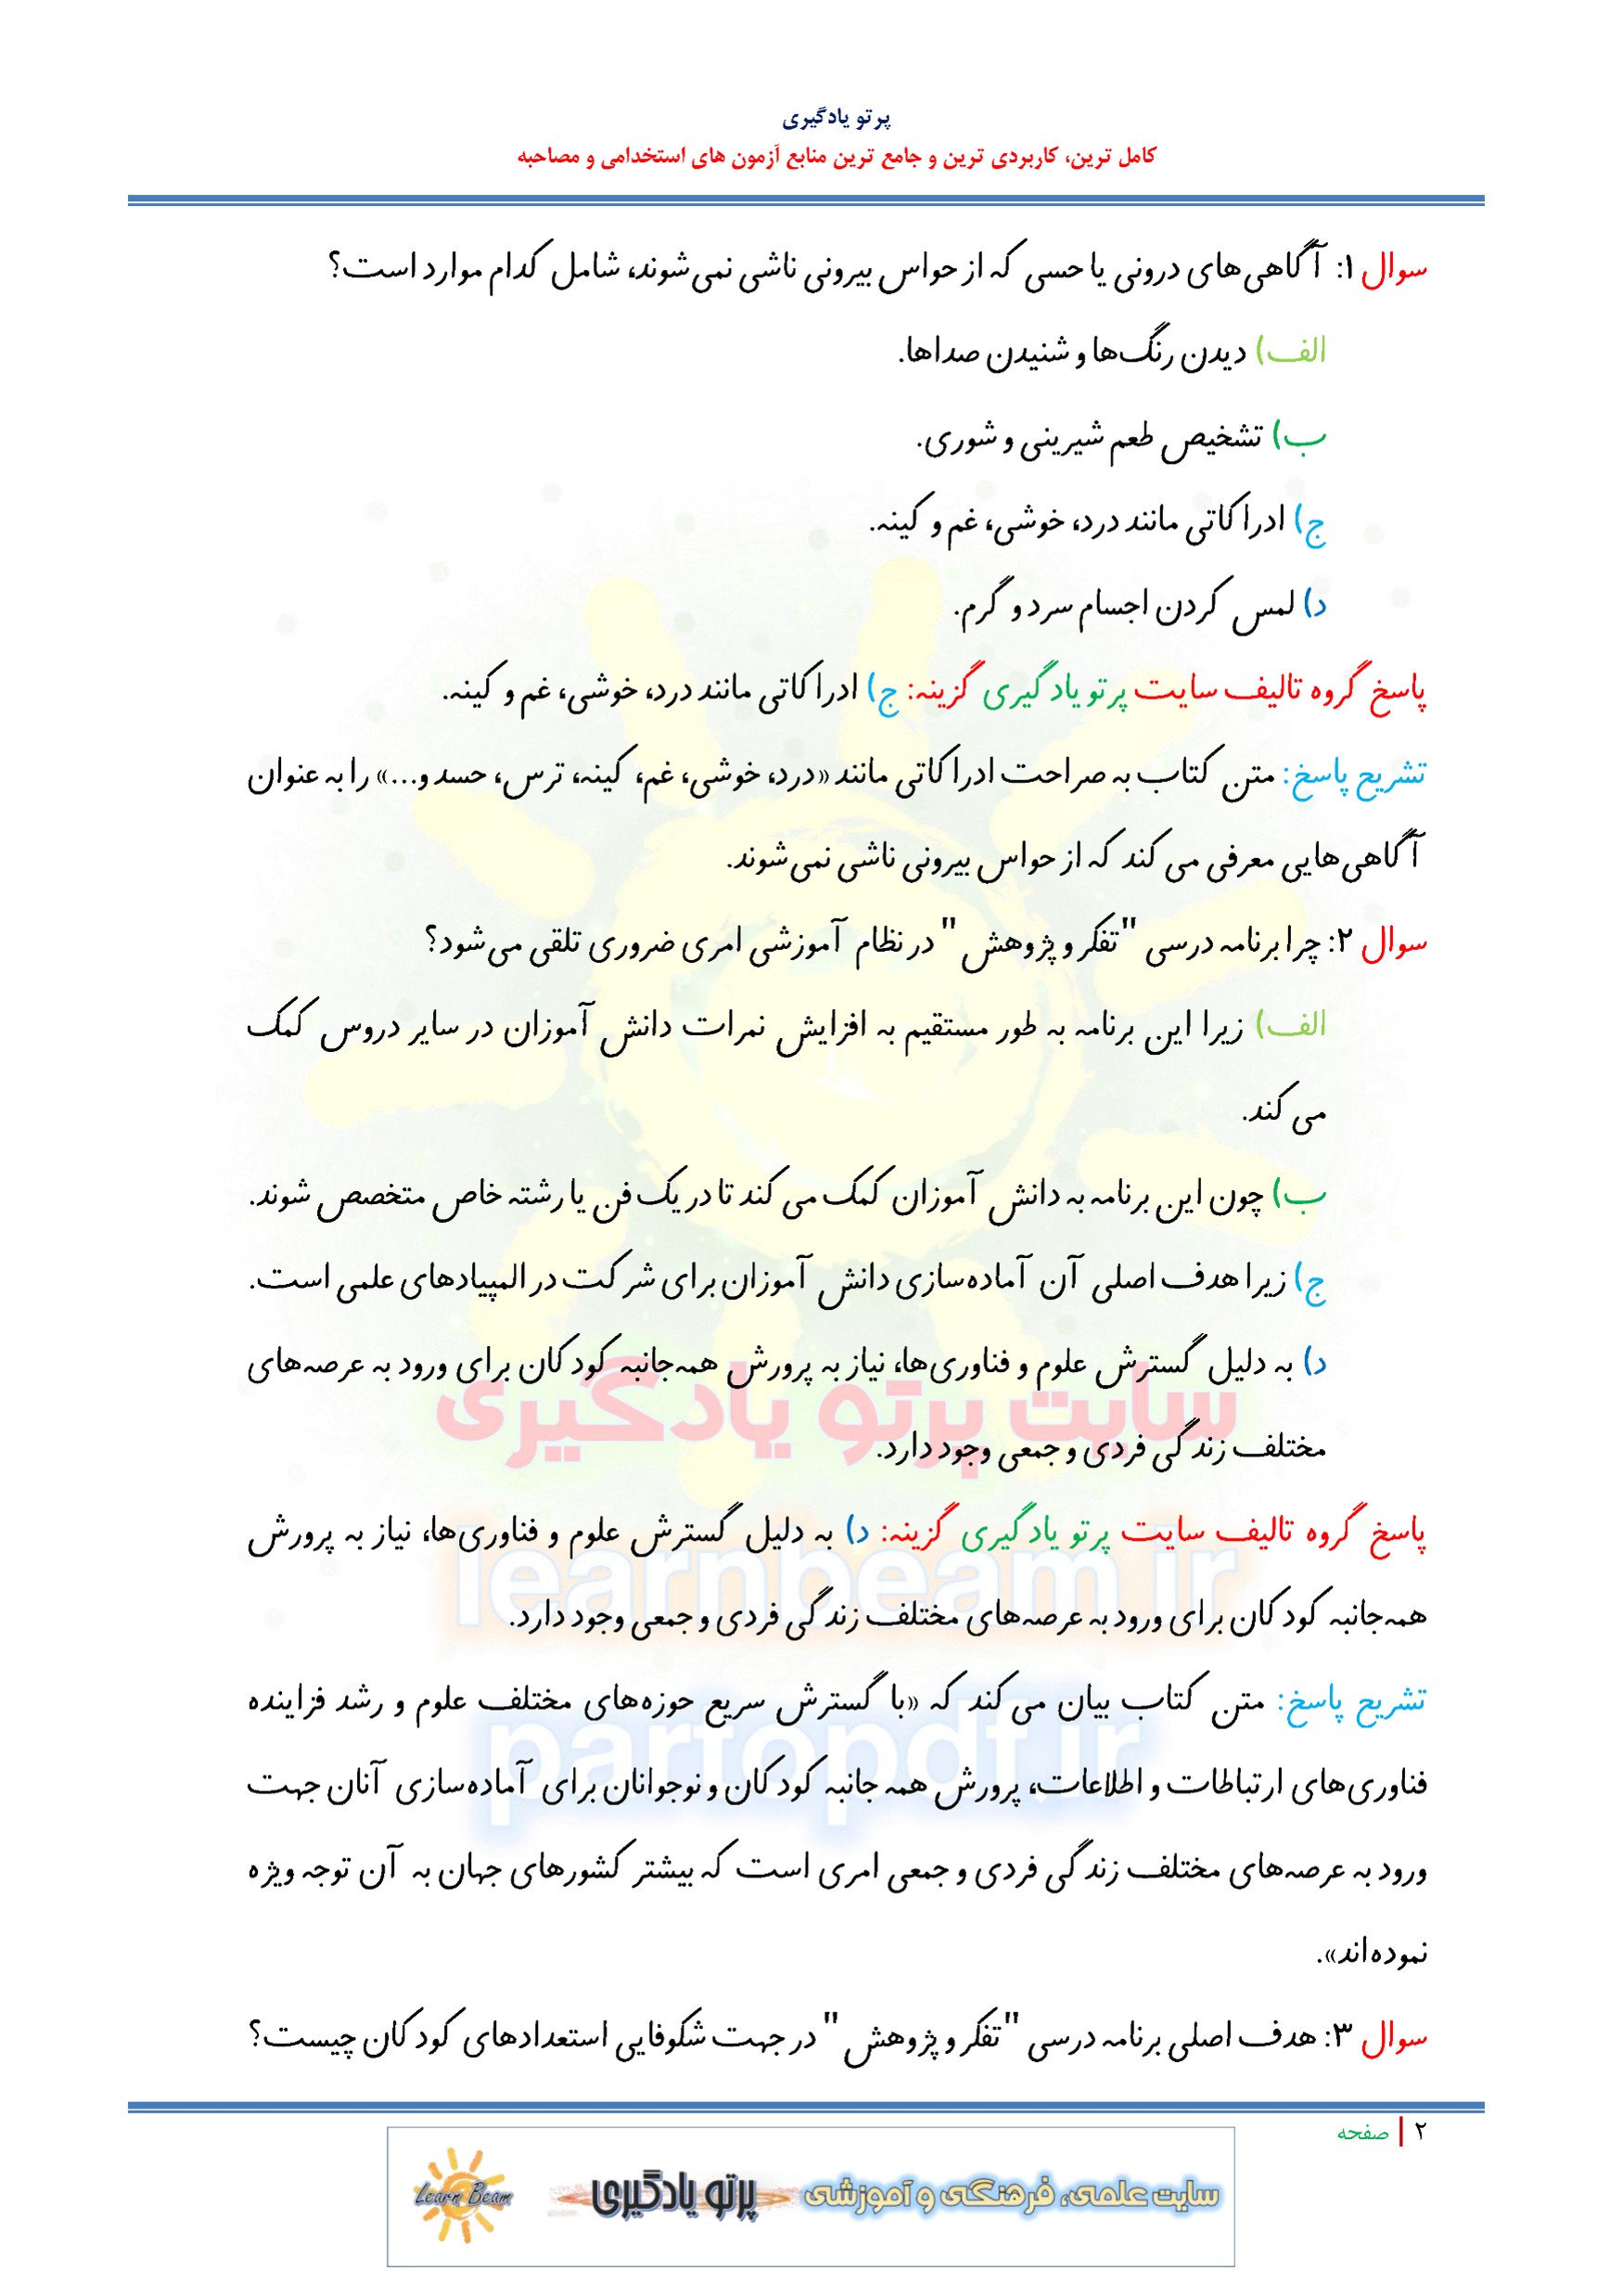 پرتو یادگیری
کامل ترین، کاربردی ترین و جامع ترین منابع آزمون های استخدامی و مصاحبه
سوال ۱: آگاهی‌های درونی یا حسی که از حواس بیرونی ناشی نمی‌شوند، شامل کدام موارد است؟
الف) دیدن رنگ‌ها و شنیدن صداها.
ب) تشخیص طعم شیرینی و شوری.
ج) ادراکاتی مانند درد، خوشی، غم و کینه.
د) لمس کردن اجسام سرد و گرم.
پاسخ گروه تالیف سایت پرتو یادگیری گزینه: ج) ادراکاتی مانند درد، خوشی، غم و کینه.
تشریح پاسخ: متن کتاب به صراحت ادراکاتی مانند «درد، خوشی، غم، کینه، ترس، حسد و...» را به عنوان
آگاهی‌هایی معرفی می کند که از حواس بیرونی ناشی نمی‌شوند.
سوال ۲: چرا برنامه درسی "تفکر و پژوهش" در نظام آموزشی امری ضروری تلقی می‌شود؟
الف) زیرا این برنامه به طور مستقیم به افزایش نمرات دانش آموزان در سایر دروس کمک
می کند.
ب) چون این برنامه به دانش آموزان کمک می کند تا در یک فن یا رشته خاص متخصص شوند.
ج) زیرا هدف اصلی آن آماده‌سازی دانش آموزان برای شرکت در المپیادهای علمی است.
د) به دلیل گسترش علوم و فناوری‌ها، نیاز به پرورش همه‌جانبه کودکان برای ورود به عرصه‌های
مختلف زندگی فردی و جمعی وجود دارد.
پاسخ گروه تالیف سایت پرتو یادگیری گزینه: د) به دلیل گسترش علوم و فناوری‌ها، نیاز به پرورش
همه‌جانبه کودکان برای ورود به عرصه‌های مختلف زندگی فردی و جمعی وجود دارد.
تشریح پاسخ: متن کتاب بیان می‌کند که «با گسترش سریع حوزه‌های مختلف علوم و رشد فزاینده
فناوری‌های ارتباطات و اطلاعات، پرورش همه جانبه کودکان و نوجوانان برای آماده‌سازی آنان جهت
ورود به عرصه‌های مختلف زندگی فردی و جمعی امری است که بیشتر کشورهای جهان به آن توجه ویژه
نموده‌اند».
سوال ۳: هدف اصلی برنامه درسی "تفکر و پژوهش" در جهت شکوفایی استعدادهای کودکان چیست؟
سایت پرتو یادگیری
learnbeam.ir
partopdf.ir
۲ | صفحه
سایت علمی، فرهنگی و آموزشی پرتو یادگیری Learn Beam